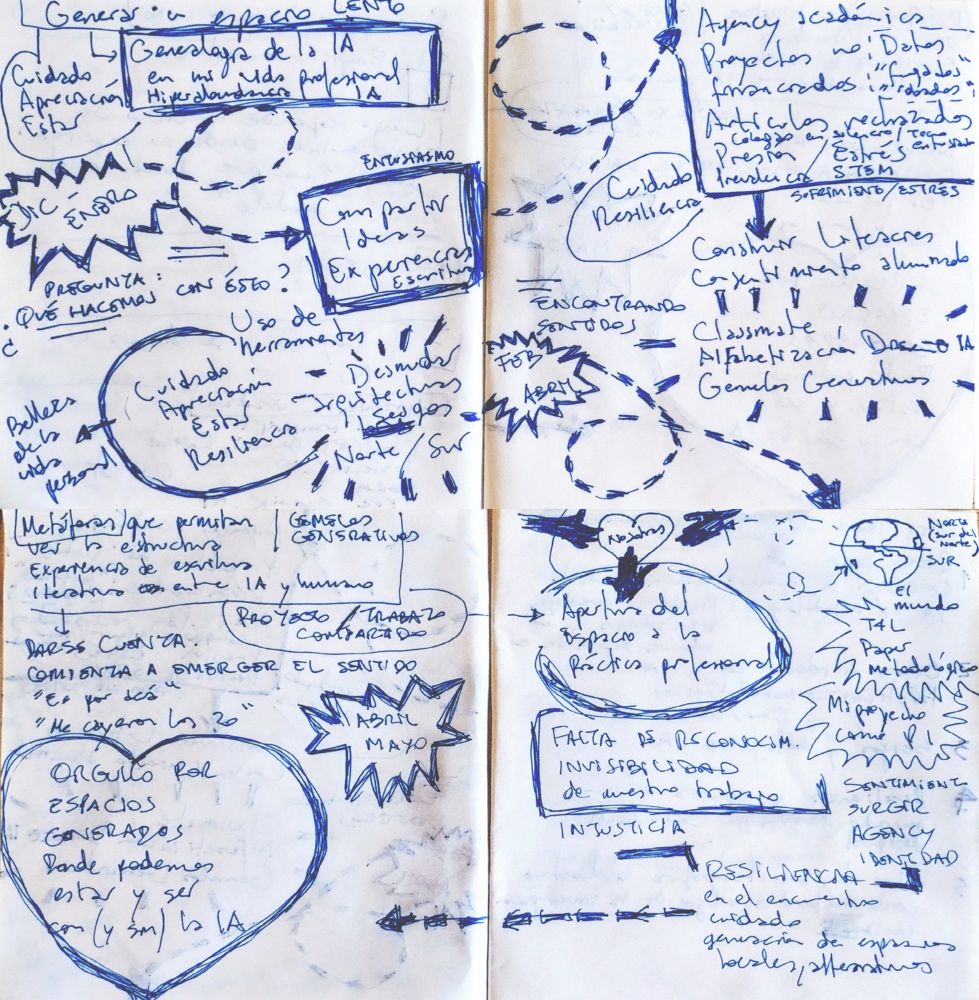 Generar un espacio LENTO
Genealogía de la IA
en mi vida profesional
Hiperabundancia IA
Cuidado
Apreciación
Estar
DIC
ENERO
ENTUSIASMO
Compartir
Ideas
Experiencias
Escritura
PREGUNTA:
¿QUÉ HACEMOS CON ÉSTO?
Uso de
herramientas
Cuidado
Apreciación
Estar
Resiliencia
Belleza
de la
vida
personal
Desnudar
Arquitecturas
Sesgos
Norte / Sur
Agency académica
Proyectos no
financiados
Datos
"fugados"
"robados"
Artículos rechazados
Colegas en silencio /
Presión / Estrés
STEM
SUFRIMIENTO/ESTRÉS
Cuidado
Resiliencia
Construir Literacies
Consentimiento alumnado
ENCONTRANDO
SENTIDOS
FEB
ABRIL
Classmate
Alfabetización IA
Gemelos Generativos
Metáforas que permitan
ver la estructura
Experiencia de escritura
iterativa entre IA y humano
GEMELOS
GENERATIVOS
PROCESO / TRABAJO
COMPARTIDO
DARSE CUENTA
COMIENZA A EMERGER EL SENTIDO
"Es por acá"
"Me cayeron los 20"
ABRIL
MAYO
ORGULLO POR
ESPACIOS
GENERADOS
Donde podemos
estar y ser
con (y sin) la IA
Nosotros
Apertura del
Espacio a la
Práctica profesional
NORTE
(sur del
Norte)
SUR
el
mundo
T4L
Paper
Metodológico
Mi proyecto
como PI
FALTA DE RECONOCIM.
INVISIBILIDAD
de nuestro trabajo
INJUSTICIA
SENTIMIENTO
SURGIR
AGENCY
IDENTIDAD
RESILIENCIA
en el encuentro
cuidado
generación de espacios
locales, alternativos